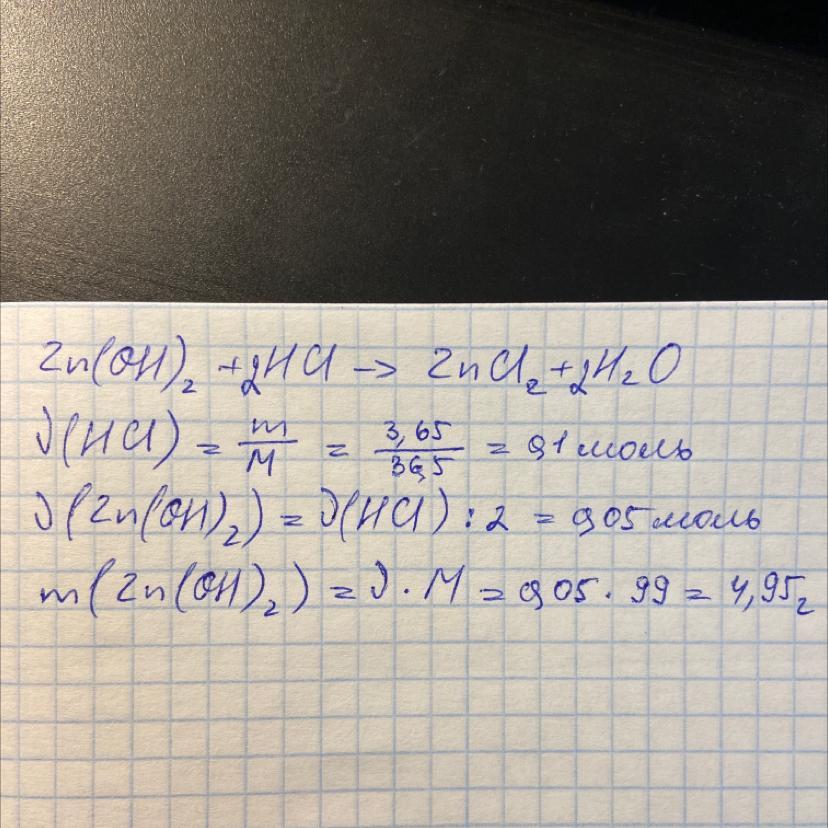 Zn(OH)₂ + 2HCl → ZnCl₂ + 2H₂O
ν(HCl) = m/M = 3,65/36,5 = 0,1 моль
ν(Zn(OH)₂) = ν(HCl) : 2 = 0,05 моль
m(Zn(OH)₂) = ν · M = 0,05 · 99 = 4,95 г